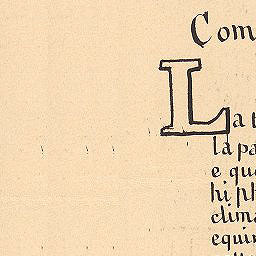 Com
La t
la pa
e que
hi ph
clima
equin